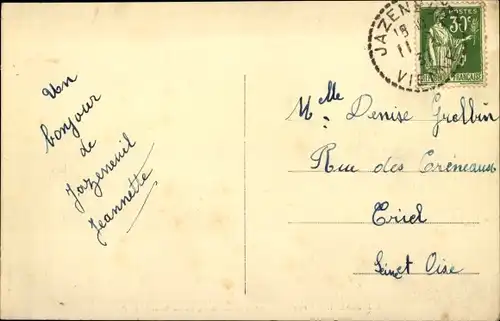 Un
bonjour
de
Jazeneuil
Jeannette
JAZENEUIL
18
11
VIENNE
POSTES
30c
FRANÇAISE
Melle Denise Grelbin
Rue des Créneaux
Eriel
Seine et Oise